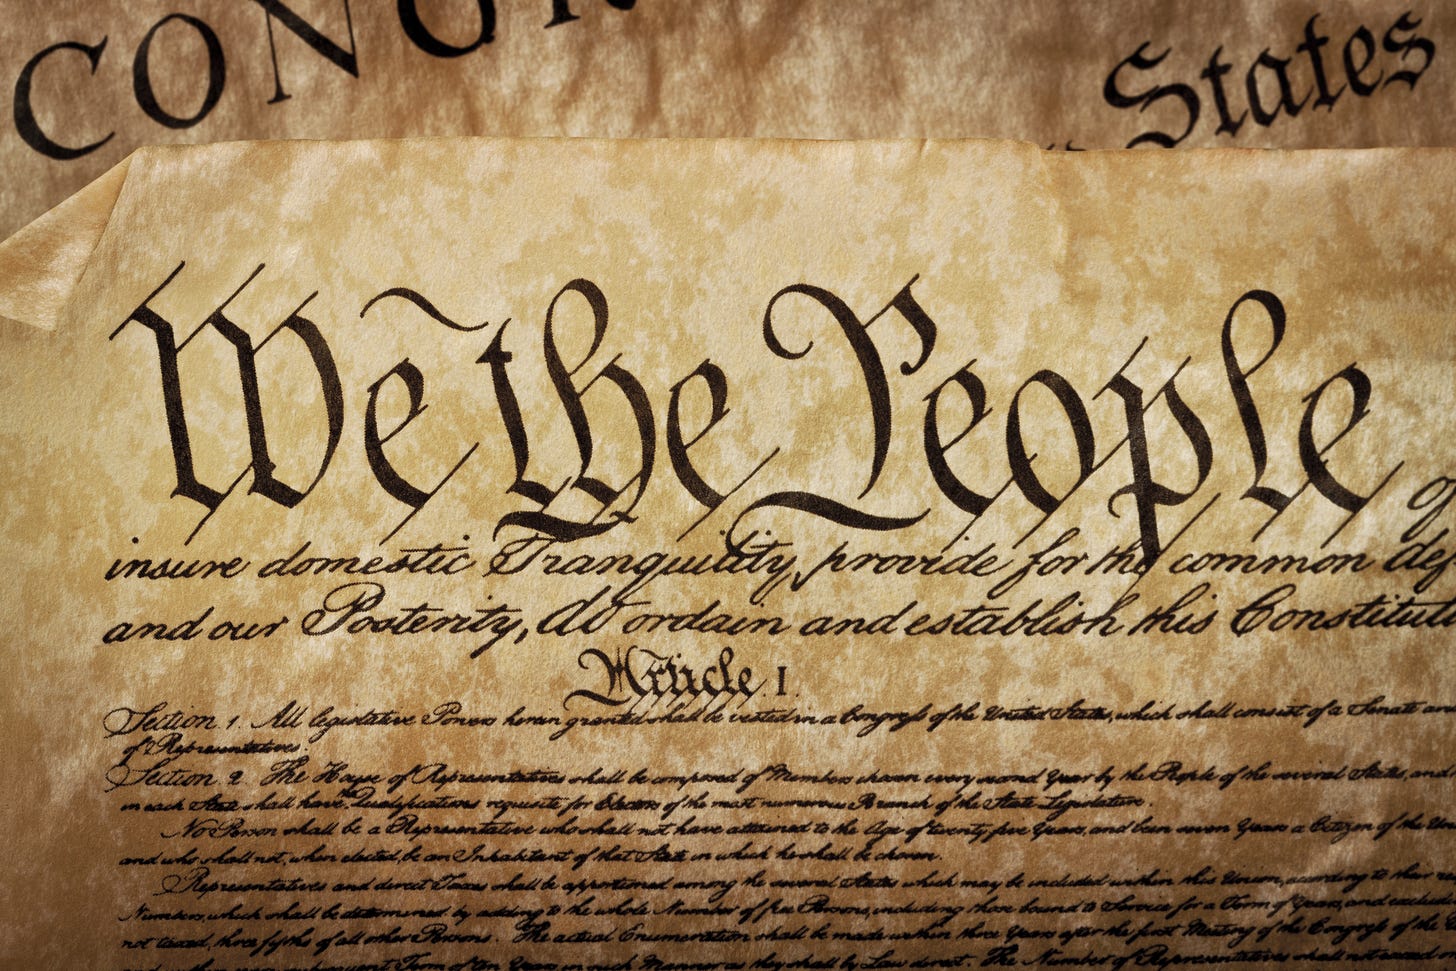 CONGR
States
We the People
insure domestic Tranquility, provide for the common def
and our Posterity, do ordain and establish this Constituti
Article. I.
Section. 1. All legislative Powers herein granted shall be vested in a Congress of the United States, which shall consist of a Senate an
of Representatives.
Section. 2. The House of Representatives shall be composed of Members chosen every second Year by the People of the several States, and
in each State shall have the Qualifications requisite for Electors of the most numerous Branch of the State Legislature.
No Person shall be a Representative who shall not have attained to the Age of twenty five Years, and been seven Years a Citizen of the Un
and who shall not, when elected, be an Inhabitant of that State in which he shall be chosen.
Representatives and direct Taxes shall be apportioned among the several States which may be included within this Union, according to their re
Numbers, which shall be determined by adding to the whole Number of free Persons, including those bound to Service for a Term of Years, and excludi
not taxed, three fifths of all other Persons. The actual Enumeration shall be made within three Years after the first Meeting of the Congress of the
subsequent Term of ten Years, in such Manner as they shall by Law direct. The Number of Representatives shall not exceed